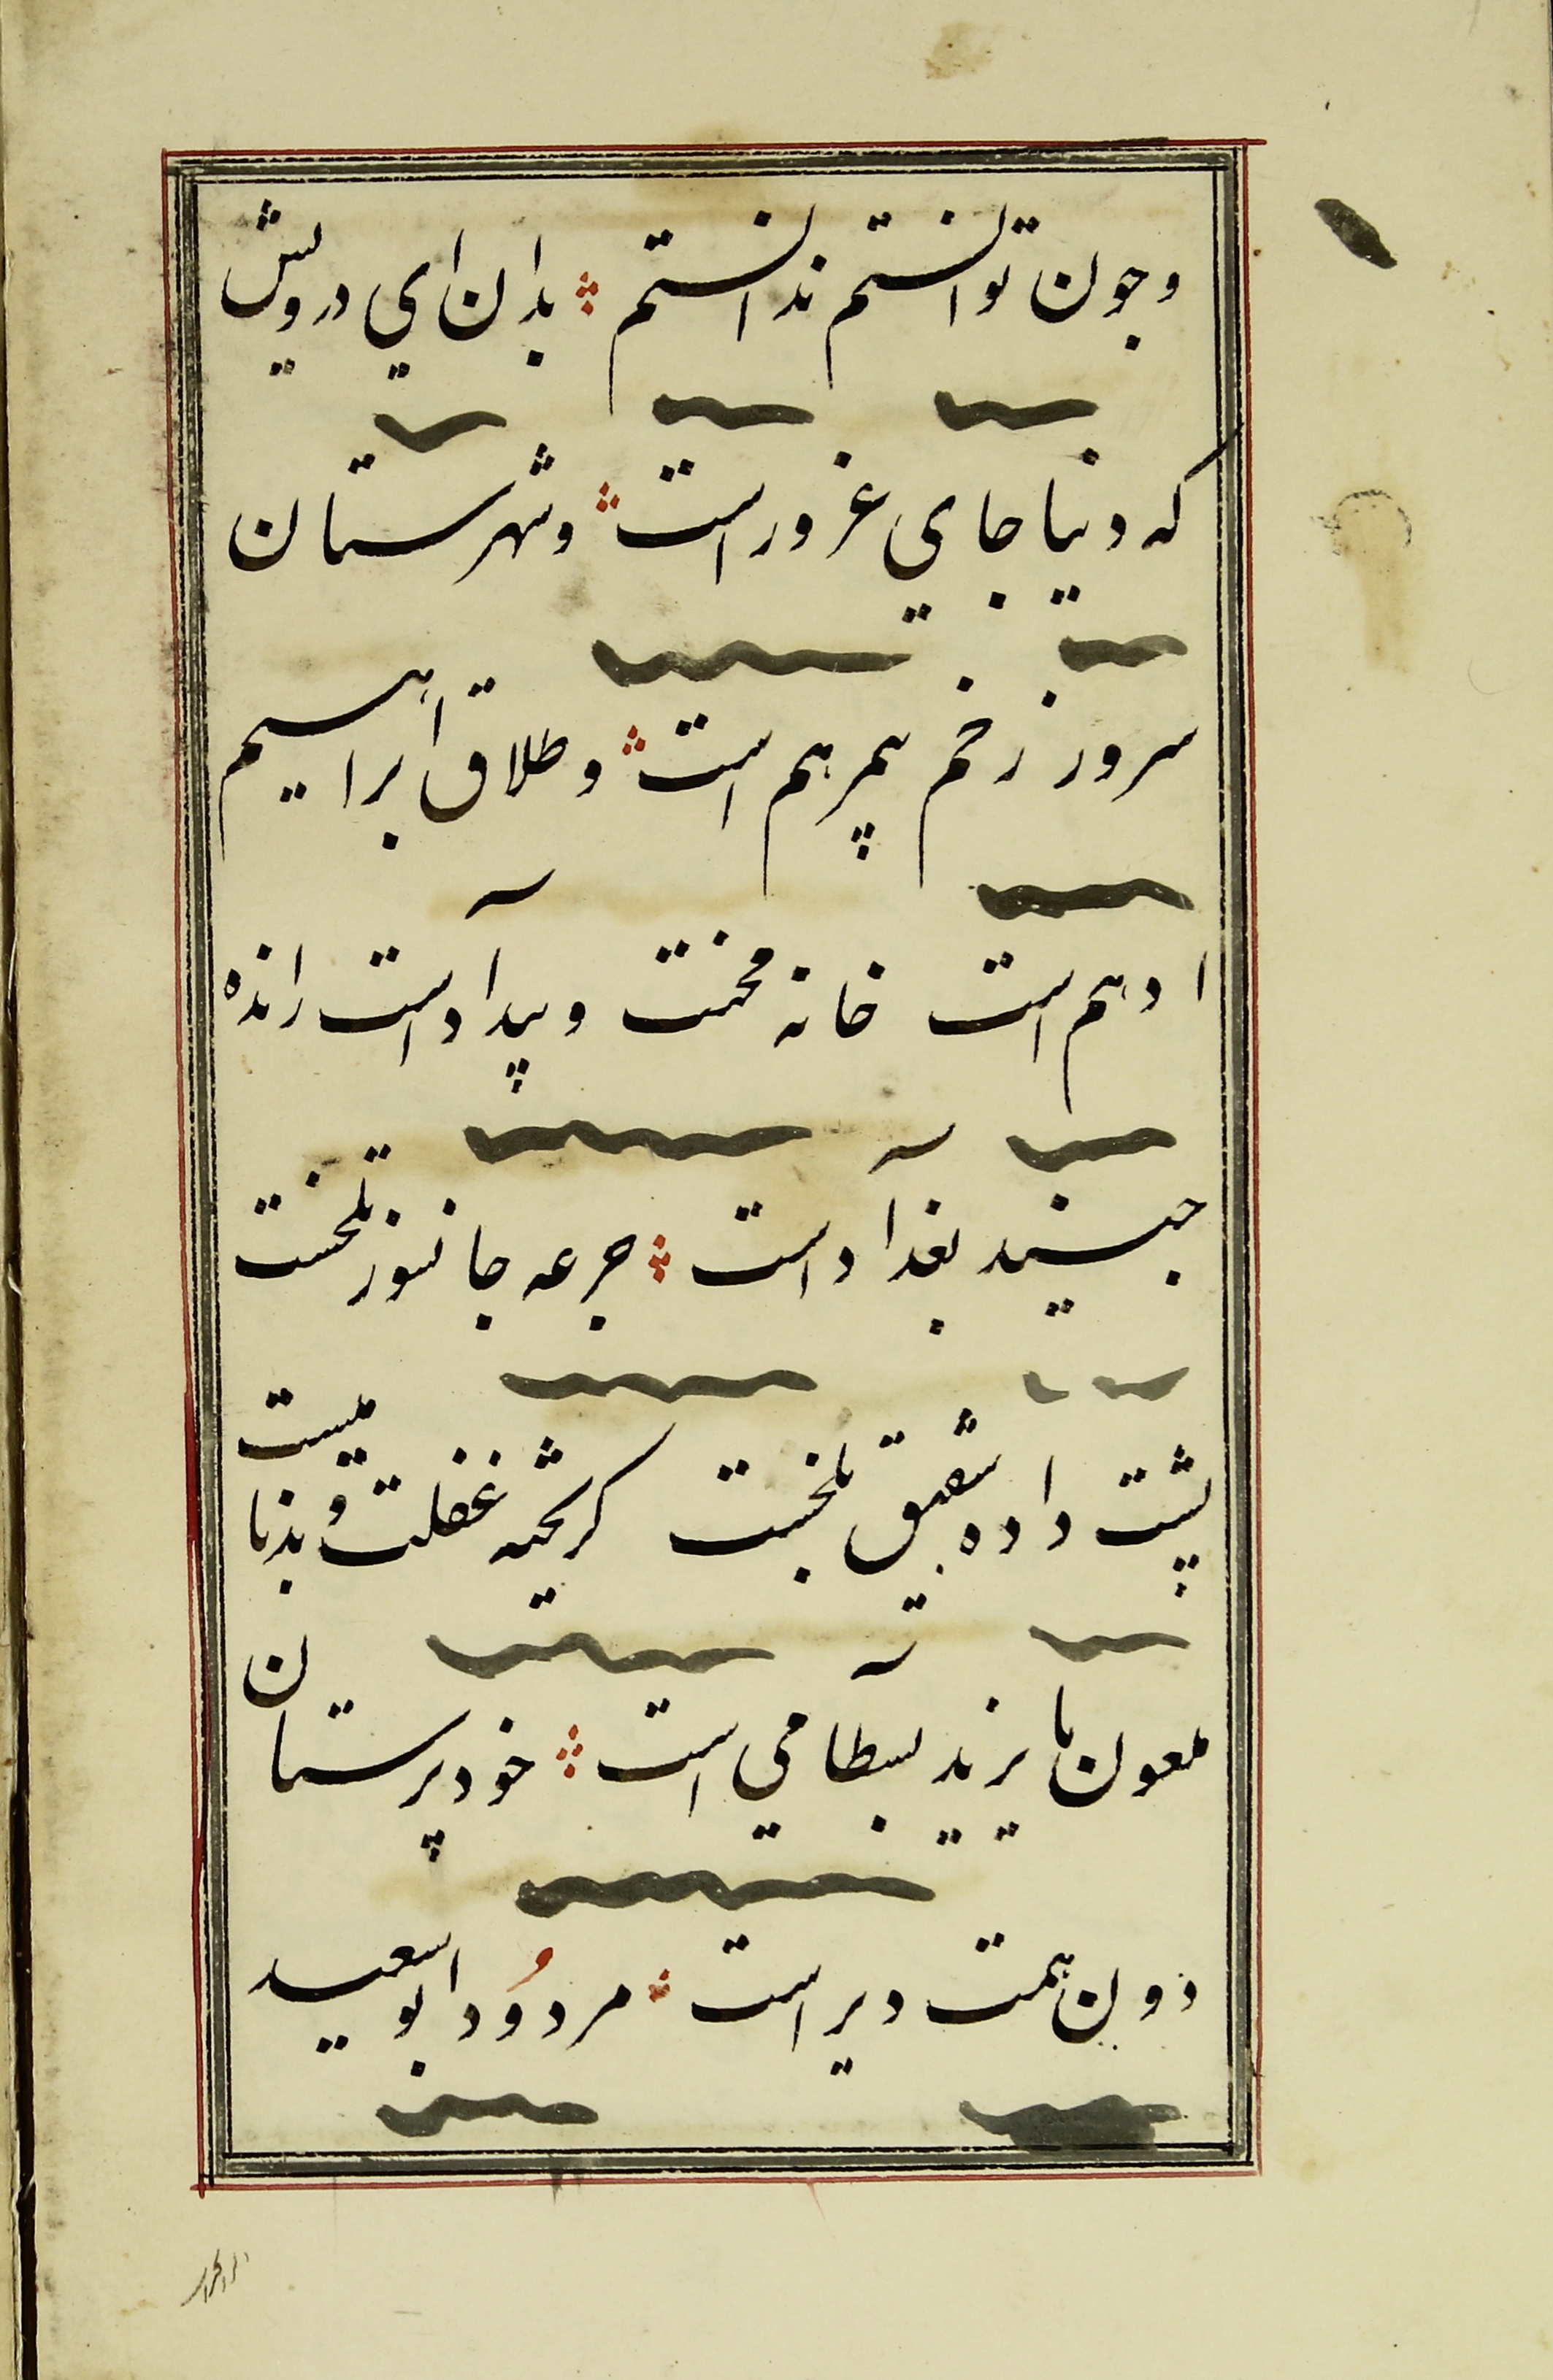 وجون توانستم ندانستم ؞ بدان اي درويش
که دنيا جاي غرور است ؞ و شهرستان
سرور زخم پمرهم است ؞ و طلاق ابراهيم
ادهم است خانه محنت و پيدآد است رانده
جنيد بغدآد است ؞ جرعه جانسوز تلخست
پشت داده شقيق بلخيست کريخته غفلت و بدناميست
ملعون بايزيد بسطآمي است ؞ خودپرستان
دون همت دير است ؞ مردُود ابوسعيد